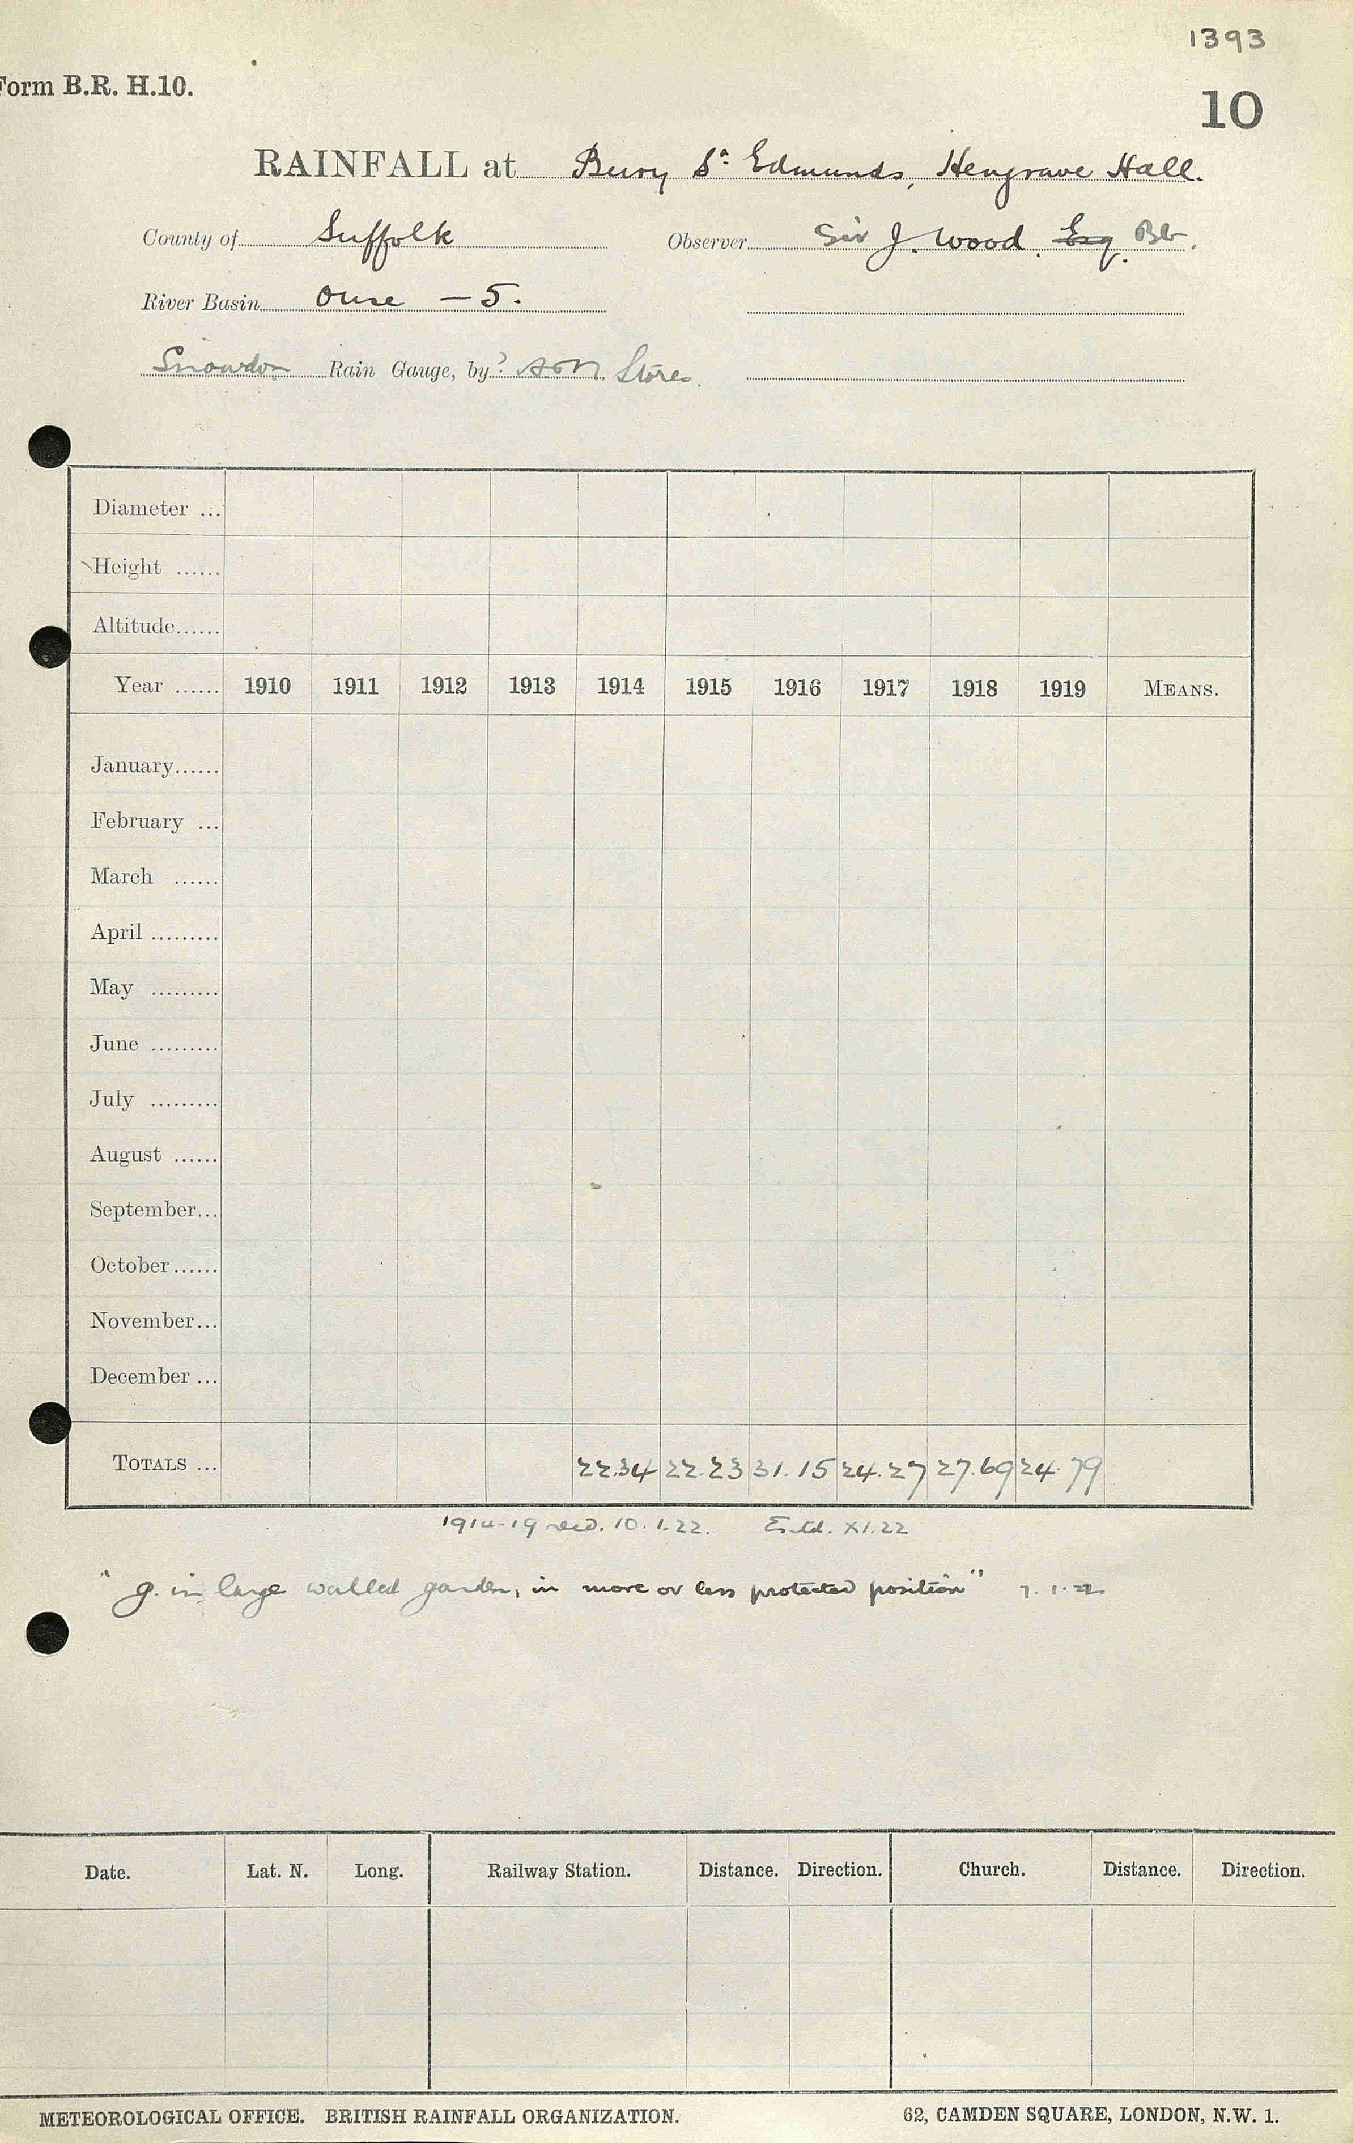 1393
Form B.R. H.10.
10
RAINFALL at Bury St. Edmunds, Hengrave Hall.
County of Suffolk Observer Sir J. Wood. Esq. Bt.
River Basin Ouse - 5.
Snowdon Rain Gauge, by ? Stores.
Diameter ...
Height ......
Altitude......
Year ...... 1910 1911 1912 1913 1914 1915 1916 1917 1918 1919 MEANS.
January......
February ...
March ......
April .........
May .........
June .........
July .........
August ......
September...
October......
November...
December ...
TOTALS ... 22.34 22.23 31.15 24.27 27.69 24.79
1914-19 recd. 10.1.22. Estd. XI.22
"g. in large walled garden, in more or less protected position" 7.1.22
Date. Lat. N. Long. Railway Station. Distance. Direction. Church. Distance. Direction.
METEOROLOGICAL OFFICE. BRITISH RAINFALL ORGANIZATION. 62, CAMDEN SQUARE, LONDON, N.W. 1.